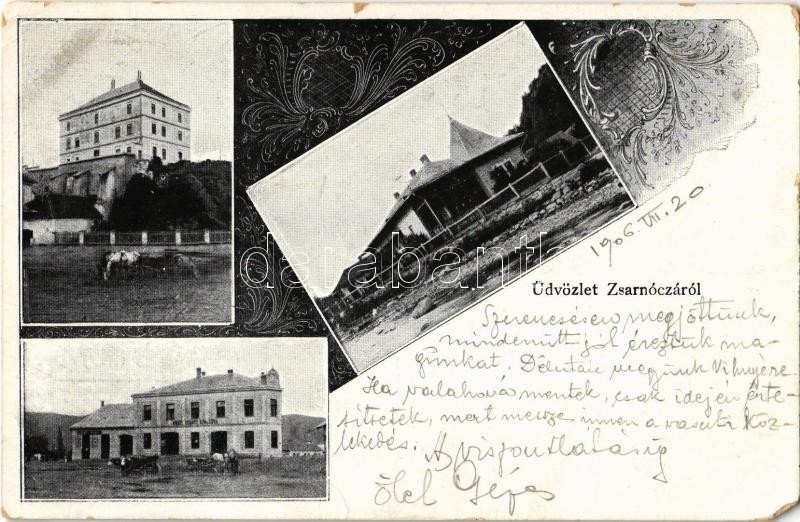 1906. VII. 20
Üdvözlet Zsarnóczáról
Szerencsésen megjöttünk,
mindenütt jól éreztük ma-
gunkat. Délután megyünk Vihnyére
Ha valahová mentek, csak idején érte-
sítsetek, mert messze innen a vasúti köz-
lekedés. A viszontlátásig
ölel Géza
darabanth.com